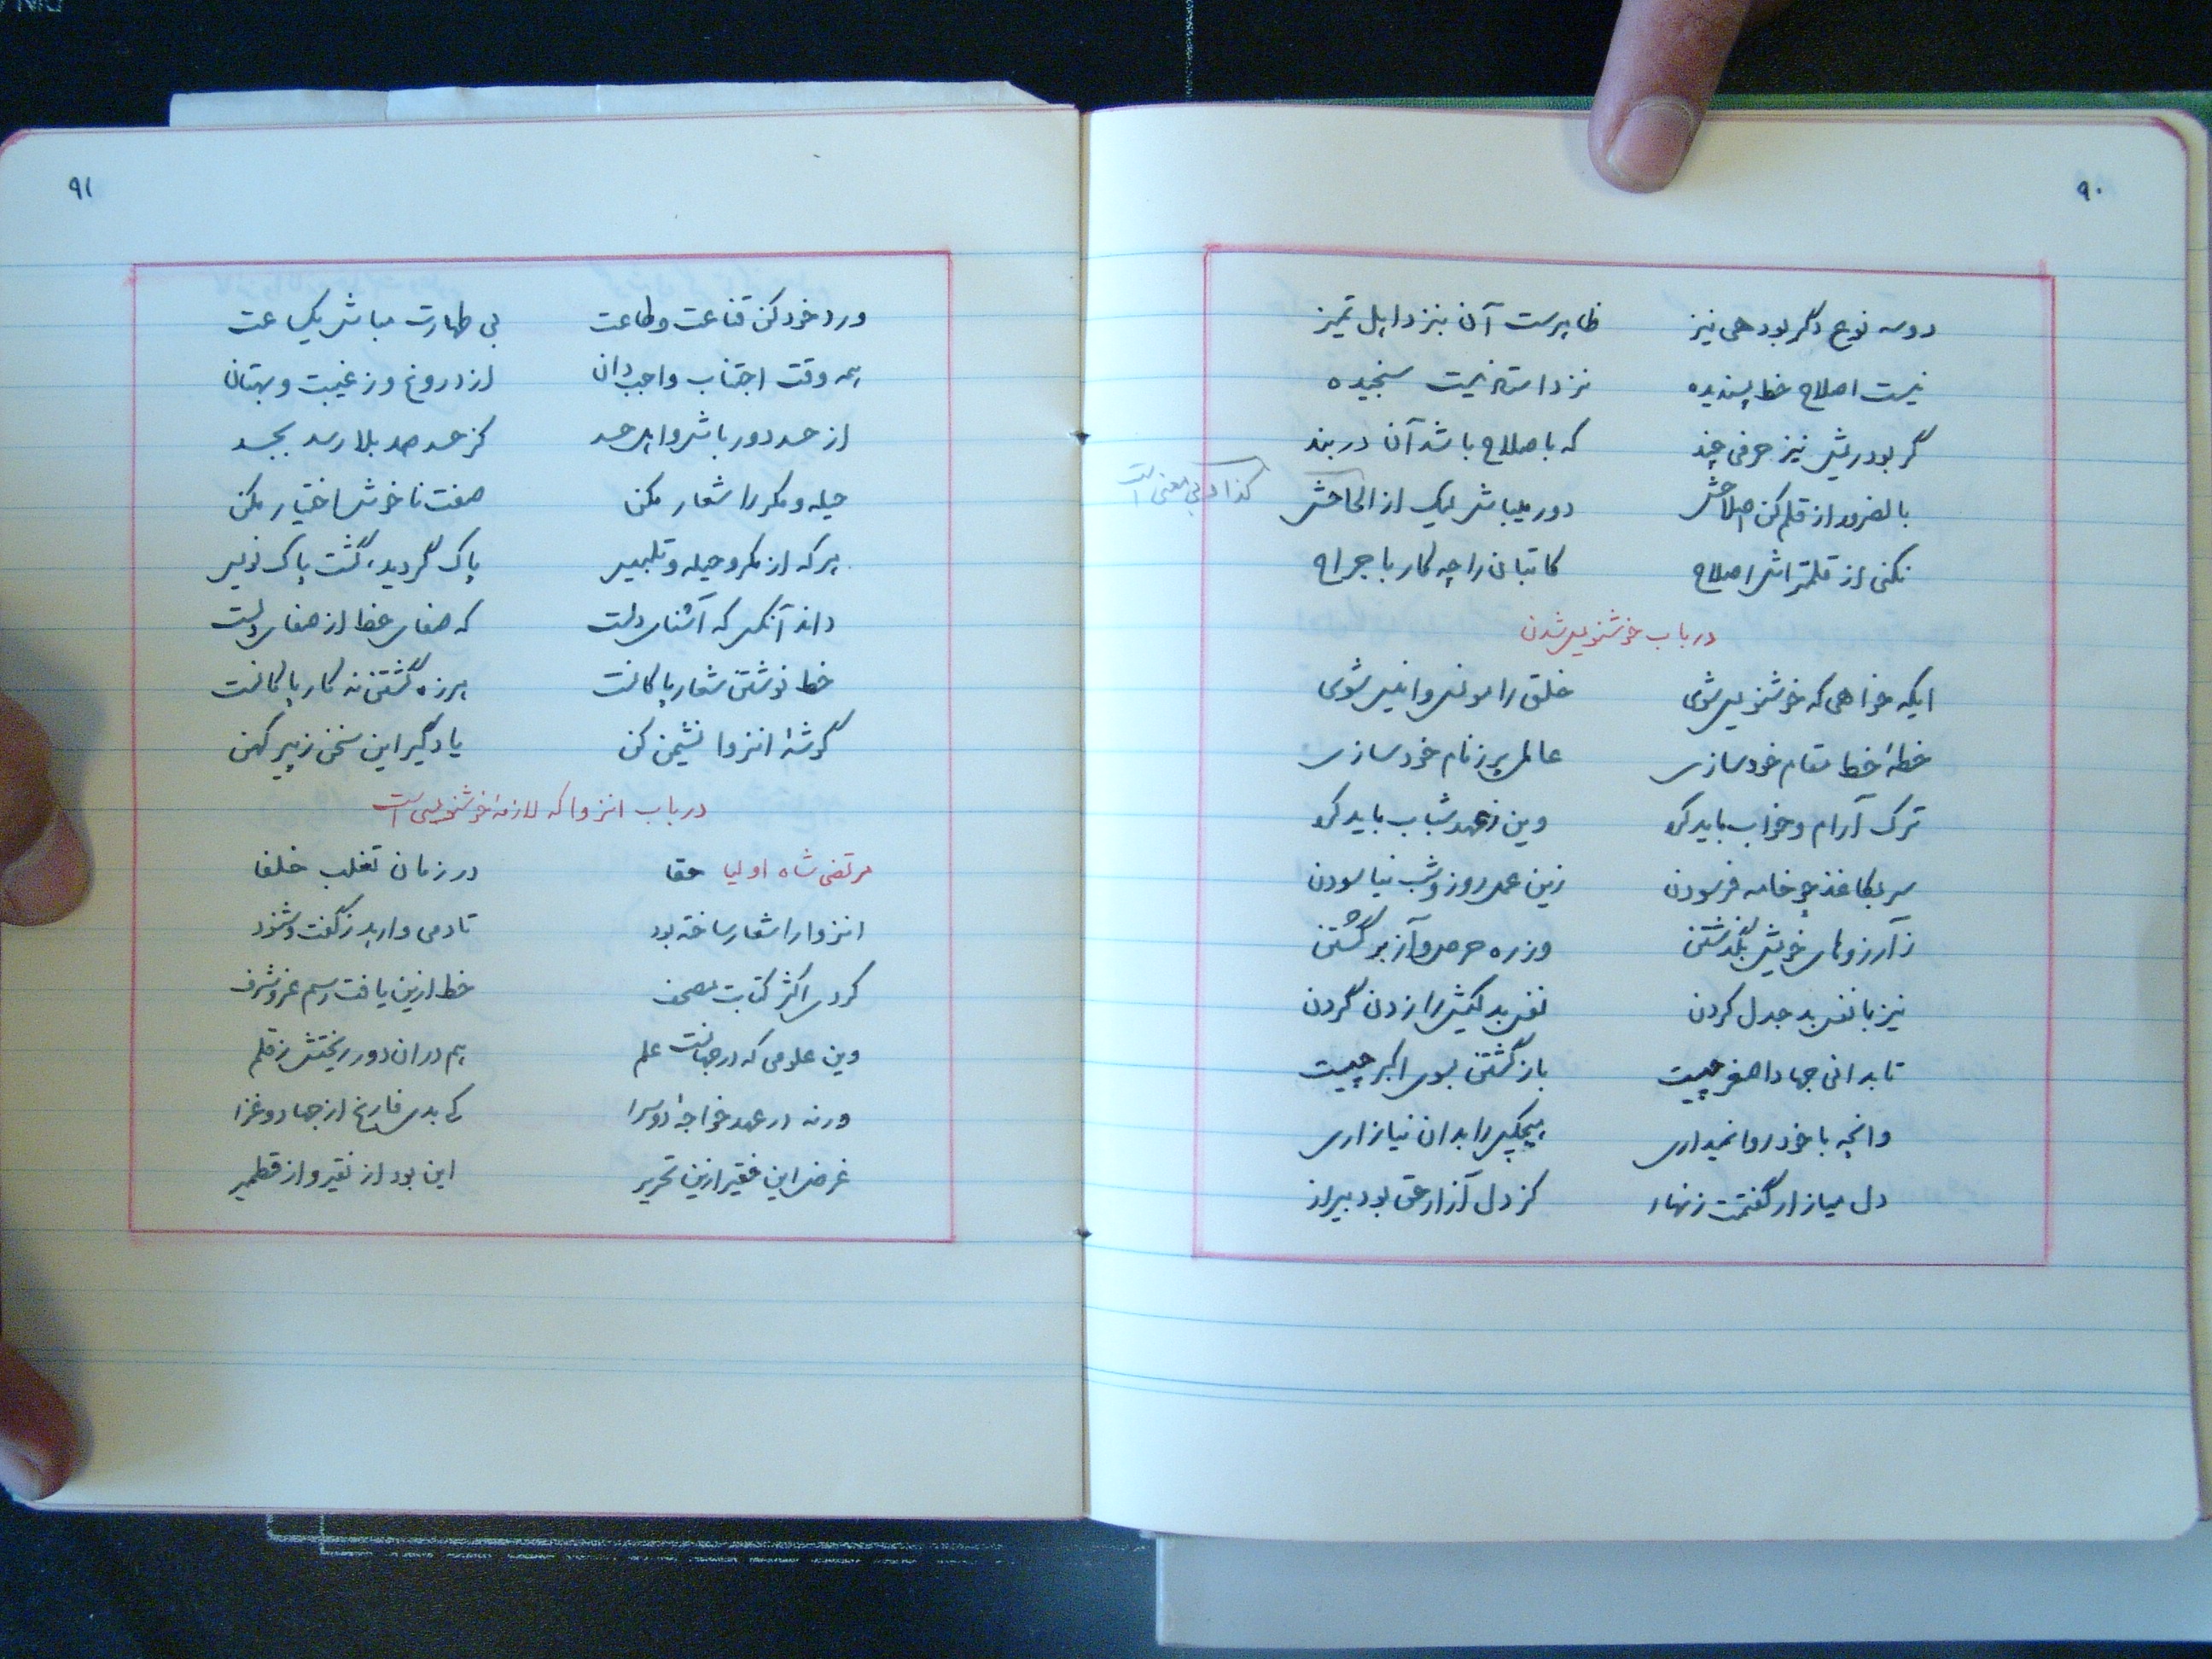 ۹۰
دو سه نوع دگر بود هی نیز ظاهرست آن بنزد اهل تمیز
نیست اصلاح خط پسندیده نزد استاد نیست سنجیده
گر بود ریش نیز حرفی چند که باصلاح باشد آن در بند
بالضرور از قلم کن اصلاحش دور میباش لیک از الحاحش
کذا و بی معنی است
نکنی از قلمتراش اصلاح کاتبان را چه کار با جراح
در باب خوشنویس شدن
ایکه خواهی که خوشنویس شوی خلق را مونس و انیس شوی
خطهٔ خط مقام خود سازی عالمی پر ز نام خود سازی
ترک آرام و خواب باید کرد وین ز عهد شباب باید کرد
سر بکاغذ چو خامه فرسودن زین عمل روز و شب نیاسودن
ز آرزوهای خویش بگذشتن وز ره حرص و آز برگشتن
نیز با نفس بد جدل کردن نفس بدکیش را زدن گردن
تا بدانی جهاد اصغر چیست بازگشتن بسوی اکبر چیست
وانچه با خود روا نمیداری هیچکس را بدان نیازاری
دل میازار گفتمت زنهار کز دل آزار حق بود بیزار
۹۱
ورد خود کن قناعت و طاعت بی طهارت مباش یکساعت
همه وقت اجتناب واجب دان از دروغ و ز غیبت و بهتان
از حسد دور باش و اهل حسد کز حسد صد بلا رسد بجسد
حیله و مکر را شعار مکن صفت ناخوش اختیار مکن
هرکه از مکر و حیله و تلبیس پاک گردید، گشت پاک نویس
داند آنکس که آشنای دلست که صفای خط از صفای دلست
خط نوشتن شعار پاکانست هرزه گشتن نه کار پاکانست
گوشهٔ انزوا نشیمن کن یاد گیر این سخن ز پیر کهن
در باب انزوا که لازمهٔ خوشنویسی است
مرتضی شاه اولیا حقا در زمان تغلب خلفا
انزوا را شعار ساخته بود تا دمی وارهد ز گفت و شنود
کردی اکثر کتابت مصحف خط ازین یافت رسم عز و شرف
وین علومی که در جهانست علم هم در ان دور ریختش ز قلم
ورنه در عهد خواجهٔ دو سرا کی بدی فارغ از جهاد و غزا
غرض این فقیر ازین تحریر این بود از نقیر و از قطمیر